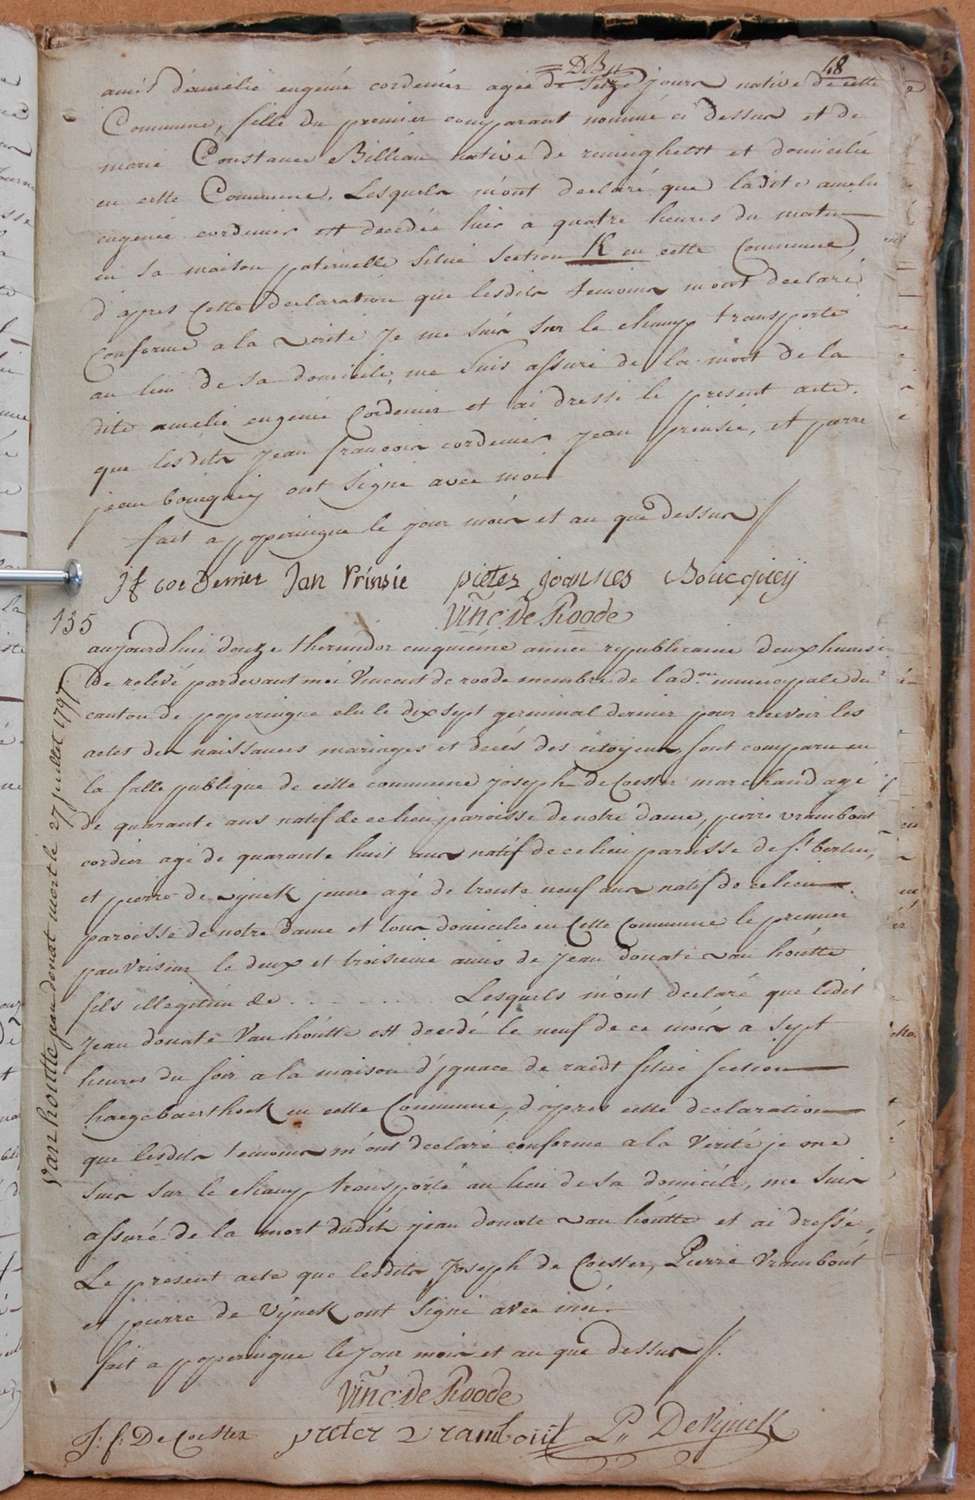 48
amis d'amelie eugénie cordenier agée de seize jours native de cette
Commune, fille du premier comparant nommé ci dessus et de
marie Constance Billiau native de reninghelst et domicilié
en cette Commune, Lesquels m'ont declaré que ladite amelie
eugenie cordenier est decedée hier a quatre heures du matin
en sa maison paternelle situé section K en cette Commune,
d'apres Cette declaration que lesdits temoins m'ont declaré
Conforme a la verité Je me suis sur le champ transporté
au lieu de sa domicile, me suis assuré de la mort de la
dite amelie eugenie Cordenier et ai dressé le present acte.
que lesdits Jean francois cordenier jean prinsie, et pierre
jean boucquey ont signé avec moi
fait a poperingue le jour mois et an que dessus
jf cordenier Jan Prinsie pieter joannes Boucqueij
Vinc: de Roode
135
aujourdhui douze thermidor cinquieme année republicaine deux heures
De relevé pardevant moi Vincent de roode membre de ladon municipale du
canton de poperingue elu le dix sept germinal dernier pour recevoir les
actes des naissances mariages et decés des citoyens, sont comparu en
la salle publique de cette commune joseph De Coester marchand agé
de quarante ans natif de ce lieu paroisse de notre dame, pierre vrambout
cordier agé de quarante huit ans natif de ce lieu paroisse de st bertin,
et pierre de vijnck jeune agé de trente neuf ans natif de ce lieu
paroisse de notre dame et tous domicilié en Cette Commune le premier
pauvriseur le deux et troisieme amis de Jean donate van houtte
fils illegitim de . . . . . . . . Lesquels m'ont declaré que ledit
Jean donate Van houtte est decedé le neuf de ce mois a sept
heures du soir a la maison d'ignace de raedt situé section
haegebaerthoek en cette Commune, d'apres cette declaration
que lesdits temoins m'ont declaré conforme a la Verité je me
suis sur le champ transporté au lieu de sa domicile, me suis
assuré de la mort dudit jean donate van houtte et ai dressé,
Le present acte que lesdits Joseph de Coester, Pierre Vrambout
et pierre de Vijnck ont signé avec moi.
fait a poperingue le Jour mois et an que dessus
Vinc: de Roode
J: f: De Coester pieter vrambout P. De Vijnck
Van houtte jean donat mort le 27 juillet 1797